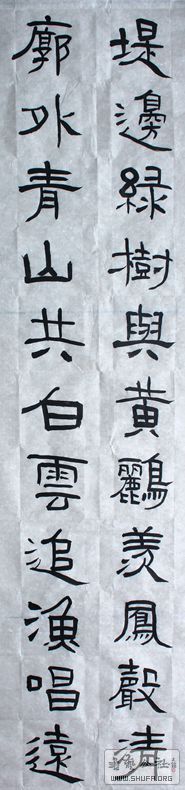 堤邊綠樹與黃鸝羨鳳聲清
廓外青山共白雲追漁唱遠
WWW.SHUFA.ORG